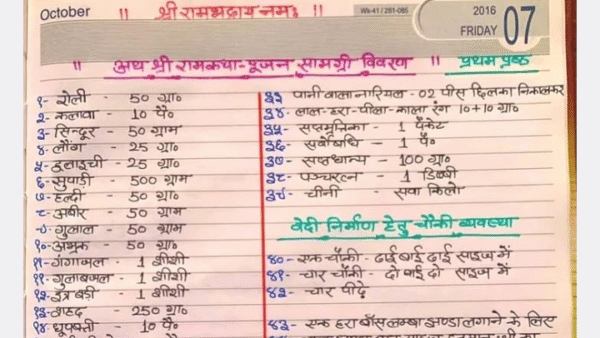 October
॥ श्री रामभद्राय नमः ॥
Wk-41 / 281-085
2016
FRIDAY
07
॥ अथ श्री रामकथा-पूजन सामग्री विवरण ॥ प्रथम पृष्ठ
१- रोली - 50 ग्रा०
२- कलावा - 10 पै०
३- सिन्दूर - 50 ग्राम
४- लौंग - 25 ग्रा०
५- इलाइची - 25 ग्रा०
६- सुपाड़ी - 500 ग्राम
७- हल्दी - 50 ग्रा०
८- अबीर - 50 ग्राम
९- गुलाल - 50 ग्राम
१०- अभ्रक - 50 ग्रा०
११- गंगाजल - 1 शीशी
१२- गुलाबजल - 1 शीशी
१३- इत्र बड़ी - 1 शीशी
१३- शहद - 250 ग्रा०
१४- धूपबत्ती - 10 पै०
३३ पानी वाला नारियल - 02 पीस छिलका निकालकर
३४- लाल-हरा-पीला-काला रंग 10+10 ग्रा०
३५- सप्तमृतिका - 1 पैकेट
३६- सर्वोषधि - 1 पै०
३७- सप्तधान्य - 100 ग्रा०
३८- पञ्चरत्न - 1 डिब्बी
३९- चीनी - सवा किलो
वेदी निर्माण हेतु चौकी व्यवस्था
४०- एक चौकी - ढाई बाई ढाई साइज में
४१- चार चौकी - दो बाई दो साइज में
४२- चार पीढे
४३- एक हरा बाँस लम्बा झण्डा लगाने के लिए